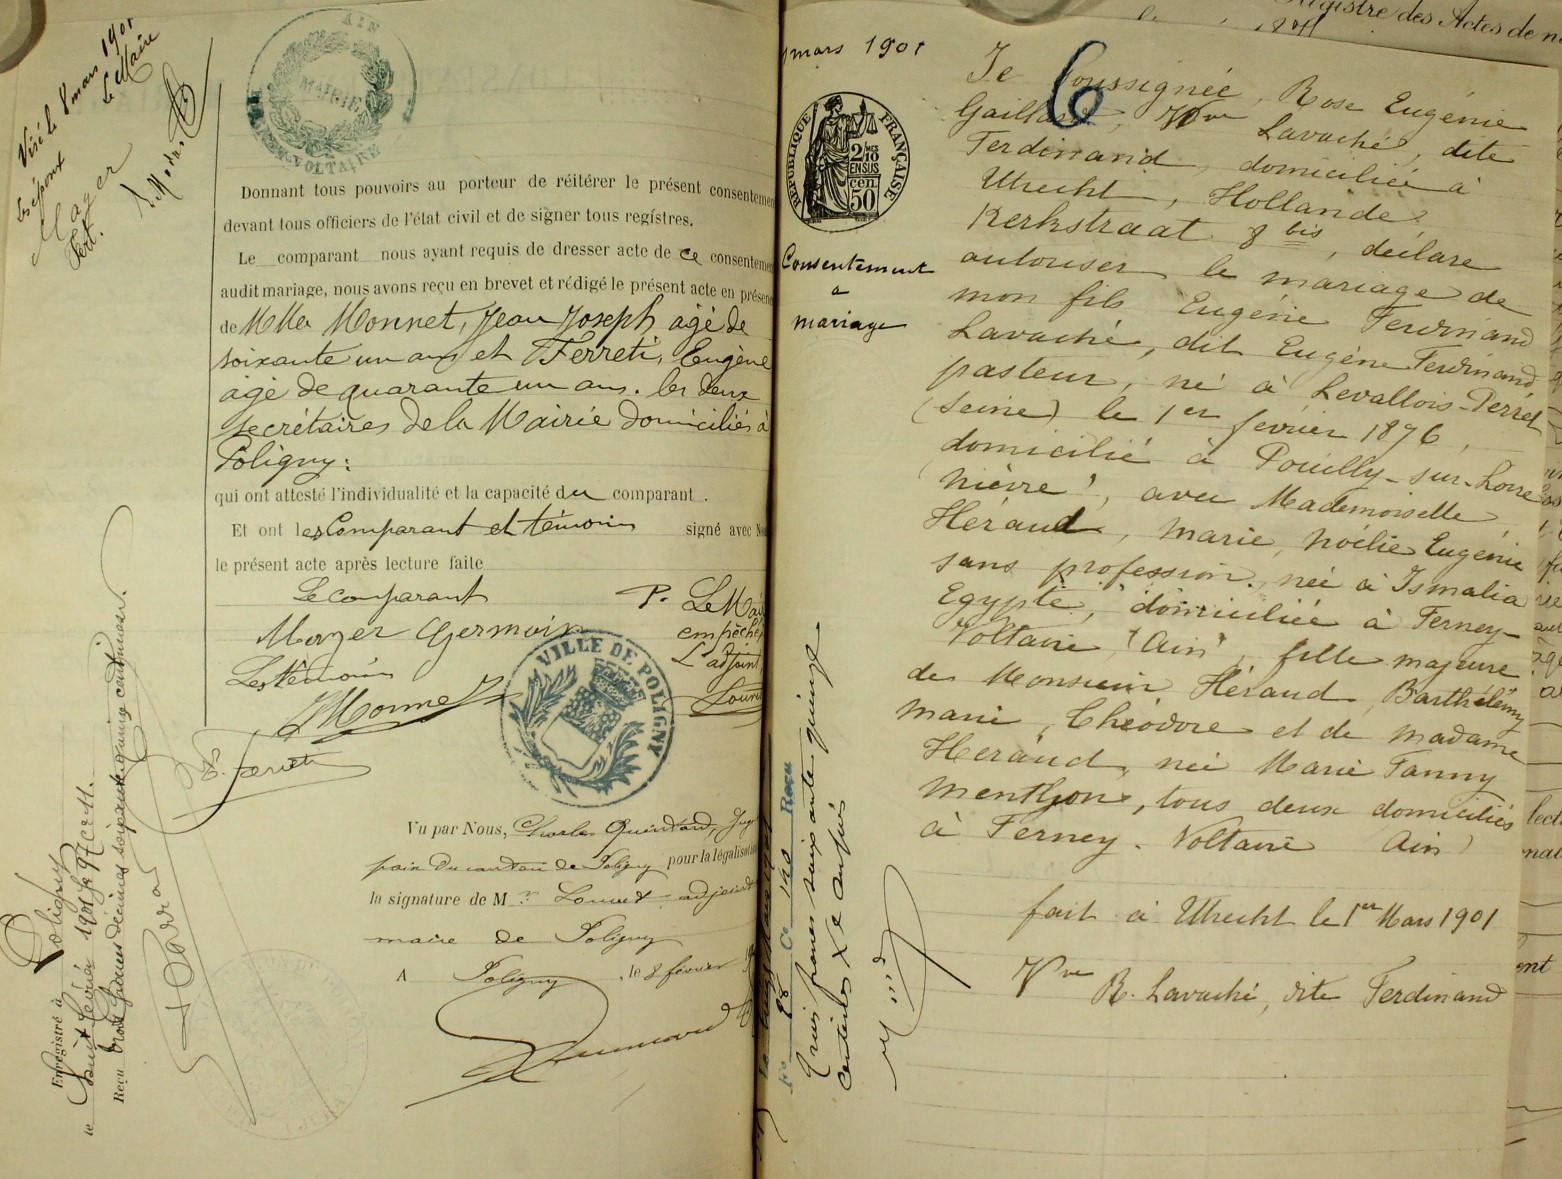 Visé le 8 mars 1901
Le Maire
Les époux
Mager
Fert.
AIN
MAIRIE
VOLTAIRE
Donnant tous pouvoirs au porteur de réitérer le présent consenteme
devant tous officiers de l'état civil et de signer tous registres.
Le comparant nous ayant requis de dresser acte de ce consenteme
audit mariage, nous avons reçu en brevet et rédigé le présent acte en présen
de MMrs Monnet, Jean Joseph agé de
soixante un ans et Ferreti, Eugène
agé de quarante un ans. les deux
secrétaires de la Mairie domiciliés à
Poligny:
qui ont attesté l'individualité et la capacité du comparant.
Et ont les Comparant et témoins signé avec No
le présent acte après lecture faite
Le comparant
P. Le Mai
empêché
L'adjoint
Germain
Les témoins
Monnet
VILLE DE POLIGNY
Vu par Nous, Charles
paix du canton de Poligny pour la légalisation
la signature de Mr adjoint
maire de Poligny
A Poligny, le 8 février
Enregistré à Poligny
le huit février 1901 fo 97 Ce 11.
Reçu trois francs décimes soixante quinze centimes.
mars 1901
RÉPUBLIQUE FRANÇAISE
2/10 MES
EN SUS
50 cen.
Consentement
a
mariage
6
Je soussignée, Rose Eugénie
Gaillard, Vve Lavaché, dite
Ferdinand, domiciliée à
Utrecht, Hollande
Kerkstraat 8 bis, déclare
autoriser le mariage de
mon fils Eugénie Ferdinand
Lavaché, dit Eugène Ferdinand
pasteur, né à Levallois-Perret
(Seine) le 1er février 1876,
domicilié à Pouilly-sur-Loire
(Nièvre), avec Mademoiselle
Héraud, Marie, Noélie Eugénie
sans profession, née à Ismalia
Egypte, domiciliée à Ferney-
Voltaire, (Ain), fille majeure
de Monsieur Héraud, Barthélémy
Marie, Théodore et de madame
Héraud, née Marie Fanny
Menthon, tous deux domiciliés
à Ferney-Voltaire Ain)
fait à Utrecht le 1er Mars 1901
Vve R. Lavaché, dite Ferdinand
Reçu
trois francs soixante quinze
centimes